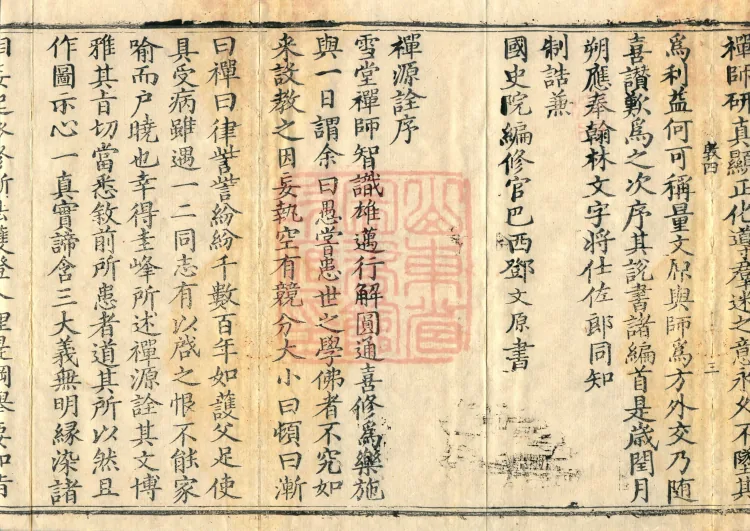 禪師研真顯正化導羣迷之意永久不墜其
三
爲利益何可稱量文原與師爲方外交乃隨
喜讃歎爲之次序其說書諸編首是歲閏月
朔應奉翰林文字將仕佐郎同知
制誥兼
國史院編修官巴西鄧文原書
禪源詮序
雪堂禪師智識雄邁行解圓通喜修爲樂施
與一日謂余曰愚嘗患世之學佛者不究如
来設教之因妄執空有競分大小曰頓曰漸
曰禪曰律訾訾紛紛千數百年如護父足使
具受病雖遇一二同志有以啓之恨不能家
喻而户曉也幸得圭峰所述禪源詮其文博
雅其旨切當悉敘前所患者道其所以然且
作圖示心一真實諦含三大義無明緣染諸